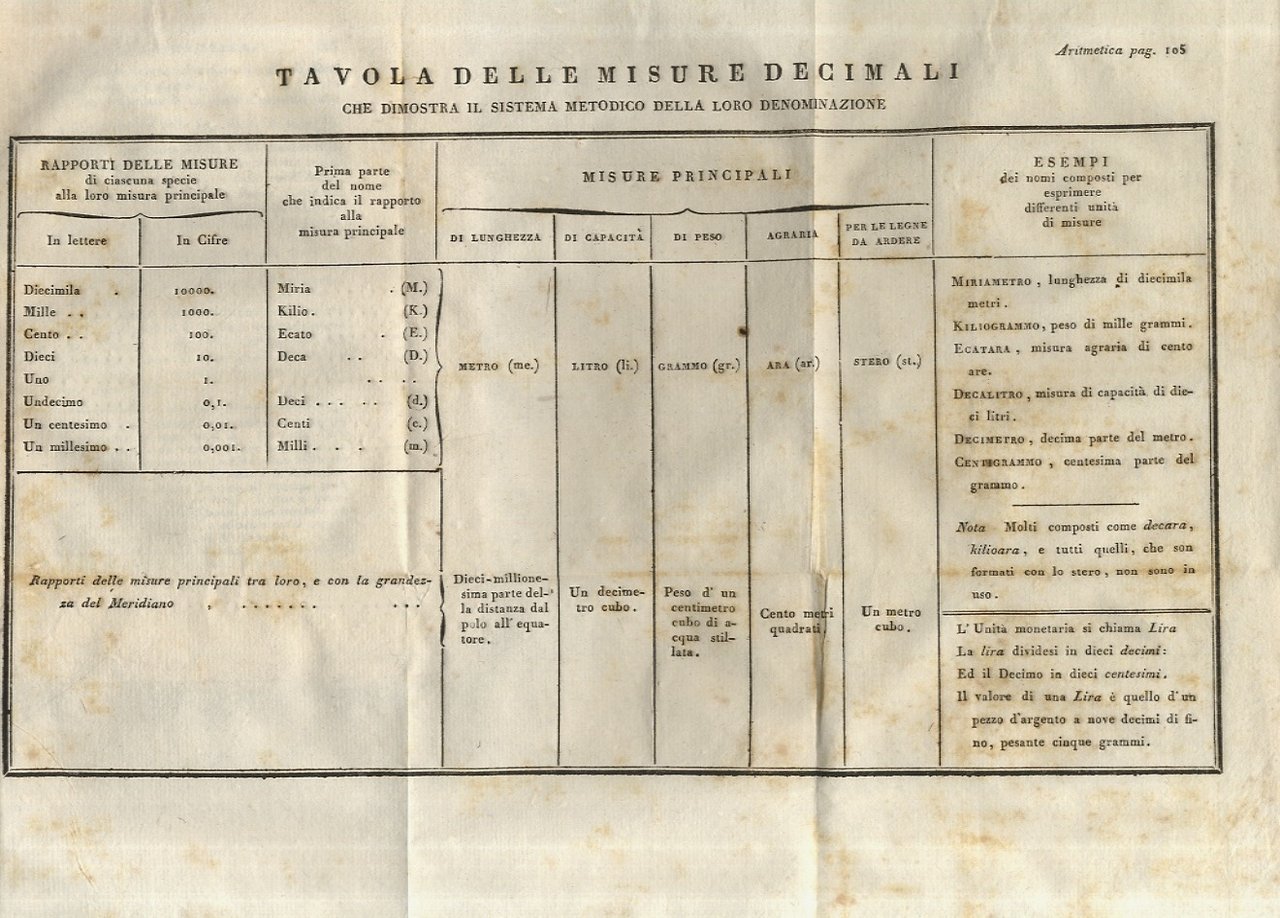 Aritmetica pag. 105
TAVOLA DELLE MISURE DECIMALI
CHE DIMOSTRA IL SISTEMA METODICO DELLA LORO DENOMINAZIONE
RAPPORTI DELLE MISURE
di ciascuna specie
alla loro misura principale
In lettere
In Cifre
Prima parte
del nome
che indica il rapporto
alla
misura principale
MISURE PRINCIPALI
DI LUNGHEZZA
DI CAPACITÀ
DI PESO
AGRARIA
PER LE LEGNE
DA ARDERE
ESEMPI
dei nomi composti per
esprimere
differenti unità
di misure
Diecimila . 10000. Miria . (M.)
Mille . . 1000. Kilio . (K.)
Cento . . 100. Ecato . (E.)
Dieci 10. Deca . . (D.)
Uno 1. . . . .
Undecimo 0,1. Deci . . . . . (d.)
Un centesimo . 0,01. Centi (c.)
Un millesimo . . 0,001. Milli . . . (m.)
METRO (me.)
LITRO (li.)
GRAMMO (gr.)
ARA (ar.)
STERO (st.)
MIRIAMETRO , lunghezza di diecimila
metri .
KILIOGRAMMO, peso di mille grammi .
ECATARA , misura agraria di cento
are.
DECALITRO , misura di capacità di die-
ci litri .
DECIMETRO , decima parte del metro .
CENTIGRAMMO , centesima parte del
grammo .
Nota Molti composti come decara ,
kilioara , e tutti quelli, che son
formati con lo stero , non sono in
uso .
Rapporti delle misure principali tra loro, e con la grandez-
za del Meridiano , . . . . . . . . . .
Dieci-millione-
sima parte del-
la distanza dal
polo all' equa-
tore .
Un decime-
tro cubo .
Peso d' un
centimetro
cubo di a-
cqua stil-
lata .
Cento metri
quadrati
Un metro
cubo .
L' Unità monetaria si chiama Lira
La lira dividesi in dieci decimi :
Ed il Decimo in dieci centesimi .
Il valore di una Lira è quello d' un
pezzo d'argento a nove decimi di fi-
no, pesante cinque grammi .